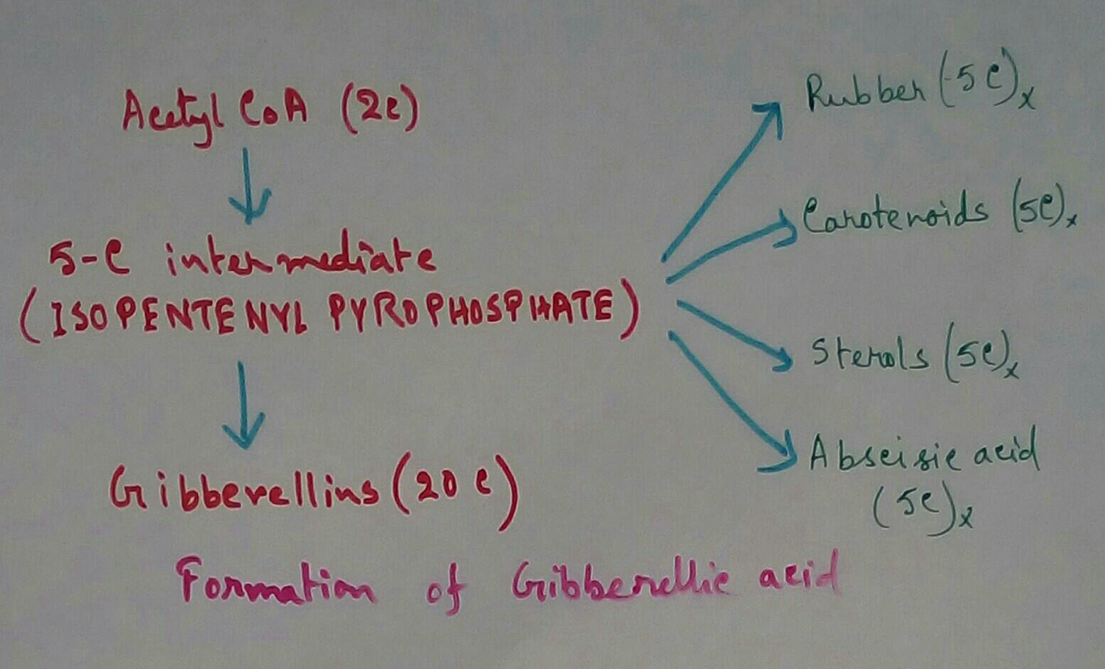 Acetyl CoA (2C)
5-C intermediate
(ISOPENTENYL PYROPHOSPHATE)
Gibberellins (20 C)
Rubber (5C)x
Carotenoids (5C)x
Sterols (5C)x
Abscisic acid
(5C)x
Formation of Gibberellic acid